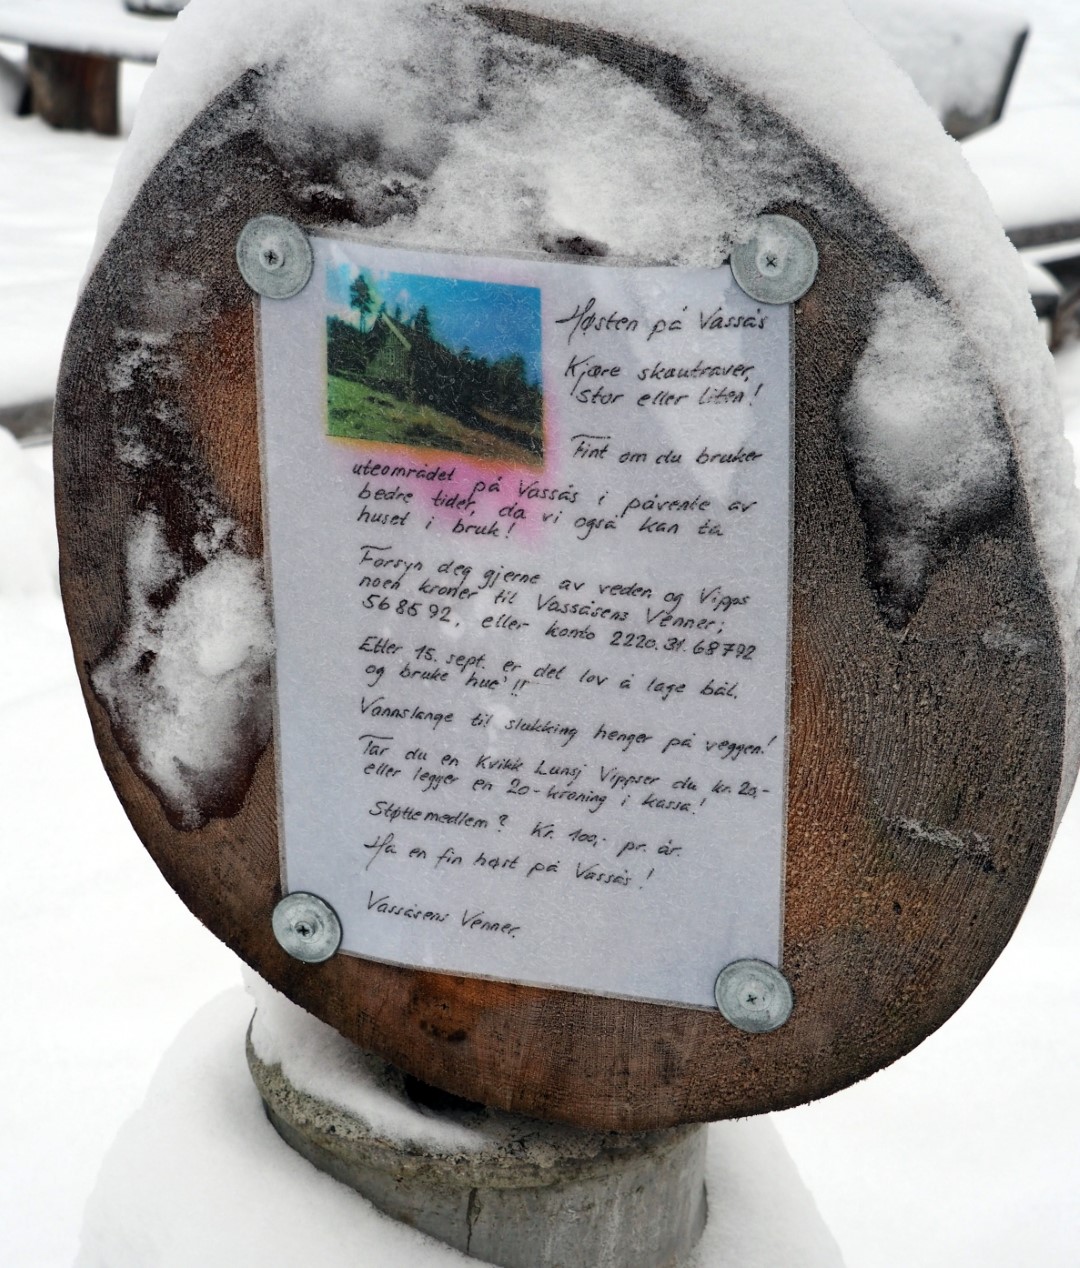 Høsten på Vassås
Kjære skautraver,
stor eller liten!
Fint om du bruker
uteområdet på Vassås i påvente av
bedre tider, da vi også kan ta
huset i bruk!
Forsyn deg gjerne av veden og Vipps
noen kroner til Vassåsens Venner;
568592, eller konto 2220.31.68792
Etter 15. sept. er det lov å lage bål,
og bruke hue'!!
Vannslange til slukking henger på veggen!
Tar du en Kvikk Lunsj Vippser du kr. 20,-
eller legger en 20-kroning i kassa!
Støttemedlem? Kr. 100,- pr. år.
Ha en fin høst på Vassås!
Vassåsens Venner.